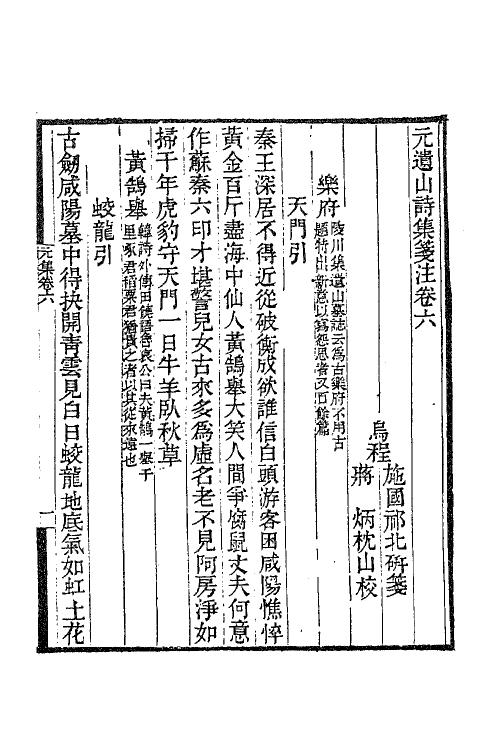 元遺山詩集箋注卷六
烏程
施國祁北硏箋
蔣　炳枕山校
樂府
陵川集遺山墓誌云為古樂府不用古
題特出新意以寫怨思者又百餘篇
天門引
秦王深居不得近從破衡成欲誰信白頭游客困咸陽憔悴
黃金百斤盡海中仙人黃鵠舉大笑人間爭腐鼠丈夫何意
作蘇秦六印才堪警兒女古來多為虛名老不見阿房淨如
掃千年虎豹守天門一日牛羊臥秋草
黃鵠舉
韓詩外傳田饒語魯哀公曰夫黃鵠一舉千
里啄君稻粱君猶貴之者以其從來遠也
蛟龍引
古劒咸陽墓中得抉開青雲見白日蛟龍地底氣如虹土花
元集卷六
一